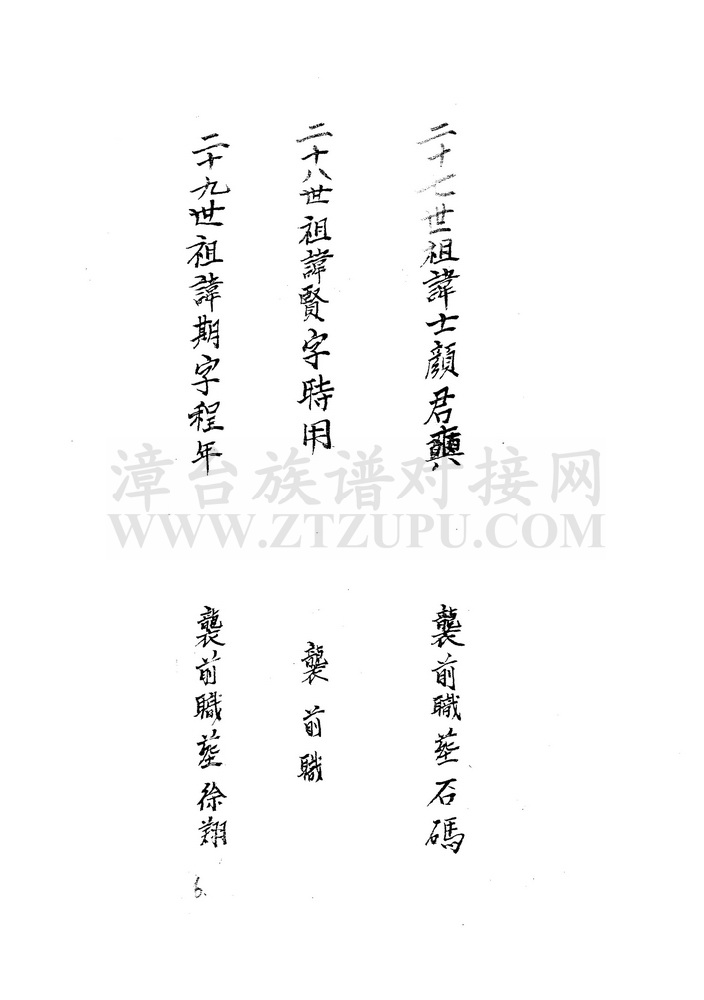 二十七世祖諱士顔君
襲前職塟石碼
二十八世祖諱賢字時用
襲前職
二十九世祖諱期字程年
襲前職塟徐翔
6.
漳台族谱对接网
WWW.ZTZUPU.COM